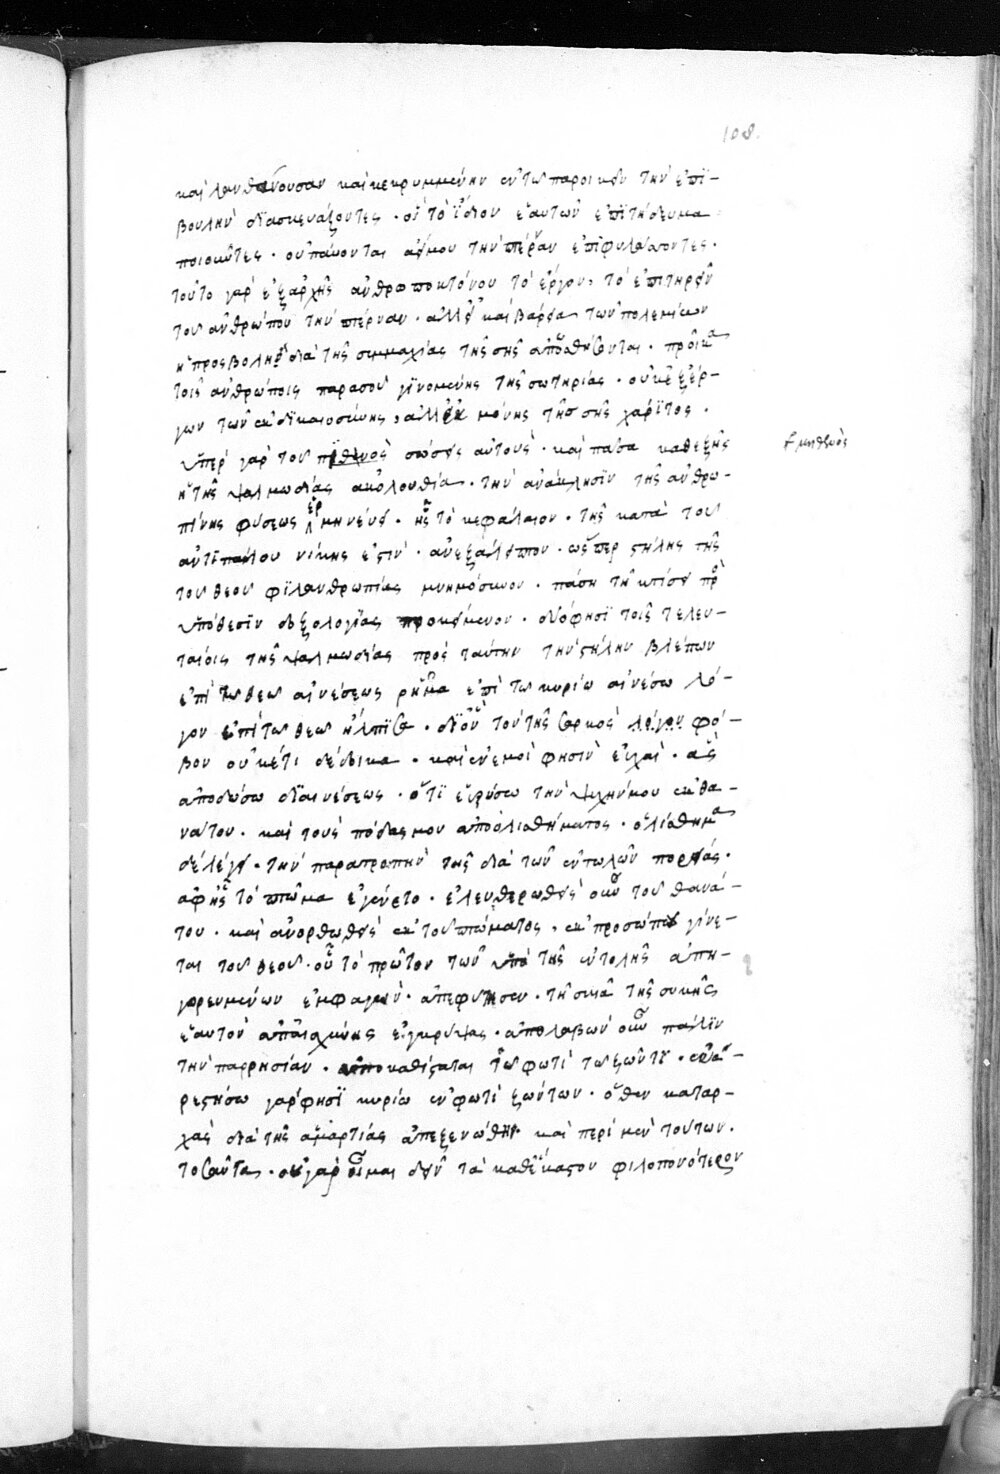 108.
καὶ λανθάνουσαν καὶ κεκρυμμένην ἐν τῶ παροικεῖν τὴν ἐπι-
βουλὴν διασκευάζοντες · οἳ τὸ ἴδιον ἑαυτῶν ἐπιτήδευμα
ποιοῦντες · οὐ παύονται ἀεί μου τὴν πτέρναν ἐπιφυλάσσοντες ·
τοῦτο γὰρ ἐξ ἀρχῆς ἀνθρωποκτόνου τὸ ἔργον, τὸ ἐπιτηρεῖν
τοῦ ἀνθρώπου τὴν πτέρναν · ἀλλ' εἰ καὶ βαρεῖα τῶν πολεμίων
ἡ προσβολὴ διὰ τῆς συμμαχίας τῆς σῆς ἀπωσθήσονται · προῖκα
τοῖς ἀνθρώποις παρὰ σοῦ γινομένης τῆς σωτηρίας · οὐκ ἐξ ἔρ-
γων τῶν ἐκ δικαιοσύνης, ἀλλ' ἐκ μόνης τῆς σῆς χάριτος ·
ὑπὲρ γὰρ τοῦ μηθενὸς σώσεις αὐτοὺς · καὶ πᾶσα καθεξῆς
μηθενὸς
ἡ τῆς ψαλμωδίας ἀκολουθία · τὴν ἀνάκλησιν τῆς ἀνθρω-
πίνης φύσεως ἑρμηνεύει · ἧς τὸ κεφάλαιον · τῆς κατὰ τοῦ
ἀντιπάλου νίκης ἐστὶν · ἀνεξάλειπτον · ὥσπερ στήλης τῆς
τοῦ θεοῦ φιλανθρωπίας μνημόσυνον · πάση τῆ κτίσει πρὸς
ὑπόθεσιν δοξολογίας προκείμενον · διό φησι τοῖς τελευ-
ταίοις τῆς ψαλμωδίας πρὸς ταύτην τὴν στήλην βλέπων
ἐπὶ τῶ θεῶ αἰνέσεως ῥῆμα ἐπὶ τῶ κυρίω αἰνέσω λό-
γον ἐπὶ τῶ θεῶ ἤλπισα · δι' οὗ τοῦ τῆς σαρκὸς λόγου φό-
βον οὐκέτι δέδοικα · καὶ ἐν ἐμοὶ φησὶν εὐχαὶ · ἃς
ἀποδώσω δι' αἰνέσεως · ὅτι ἐρρύσω τὴν ψυχήν μου ἐκ θα-
νάτου · καὶ τοὺς πόδας μου ἀπὸ ὀλισθήματος · ὀλίσθημα
δὲ λέγει · τὴν παρατροπὴν τῆς διὰ τῶν ἐντολῶν πορείας ·
ἀφ' ἧς τὸ πτῶμα ἐγένετο · ἐλευθερωθεὶς οὖν τοῦ θανά-
του · καὶ ἀνορθωθεὶς ἐκ τοῦ πτώματος, ἐκ προσώπου γίνε-
ται τοῦ θεοῦ · οὗ τὸ πρῶτον τῶν ὑπὸ τῆς ἐντολῆς ἀπη-
γορευμένων ἐμφαγὼν · ἀπέφυγεν · τῆ σκιᾶ τῆς συκῆς
ἑαυτὸν ἀπ' αἰσχύνης ἐγκρύψας · ἀπολαβὼν οὖν πάλιν
τὴν παρρησίαν · ἀποκαθίσταται τῶ φωτὶ τῶ ζῶντι · εὐα-
ρεστήσω γάρ φησι κυρίω ἐν φωτὶ ζώντων · ὅθεν καταρ-
χὰς διὰ τῆς ἁμαρτίας ἀπεξενώθη καὶ περὶ μὲν τούτων ·
τοσαῦτα · οὐ γὰρ οἶμαι δεῖν τὰ καθ' ἕκαστον φιλοπονότερον